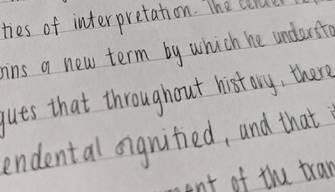 ties of interpretation. The center
ins a new term by which he understo
gues that throughout history, there
endental signified, and that i
ment of the tran